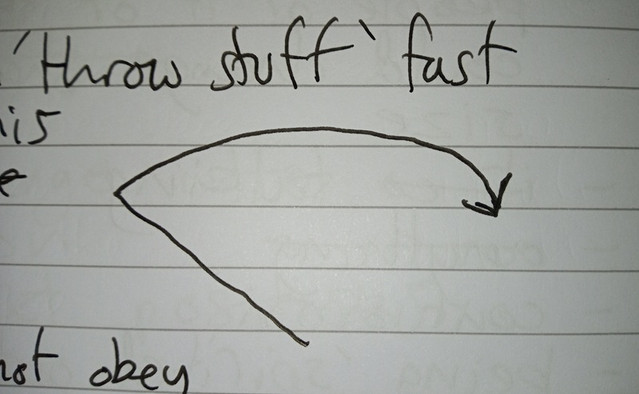 'throw stuff' fast
is
not obey